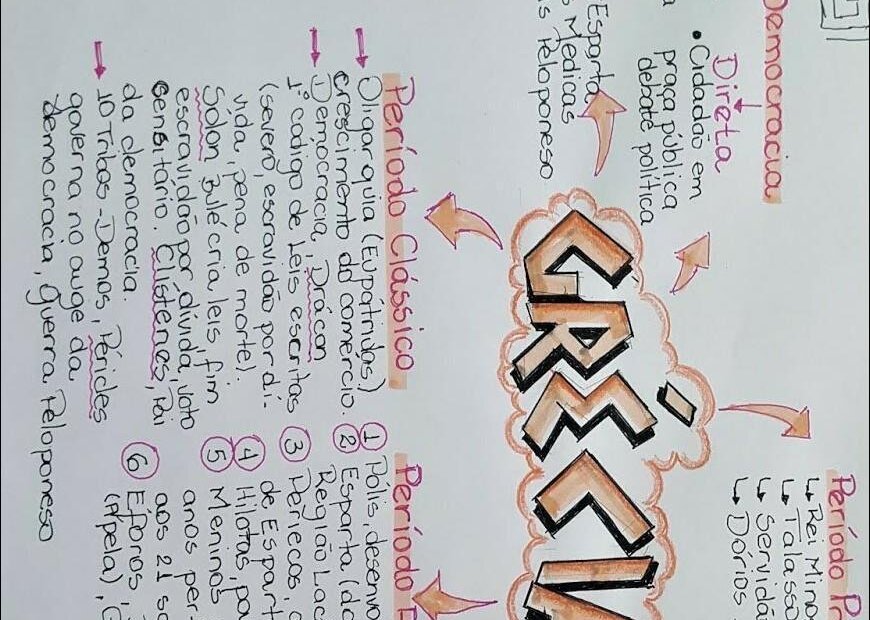 GRÉCIA
Democracia
Direta
• Cidadão em
praça pública
debate política
Esparta
Médicas
Peloponeso
Período Clássico
→ Oligarquia (Eupátridas)
crescimento do comercio.
→ Democracia, Drácon
1º codigo de Leis escritas
(severo, escravidão por dí-
vida, pena de morte).
Sólon, Bulé cria leis, fim
escravidão por dívida, voto
censitário. Clístenes, Pai
da democracia.
→ 10 Tribos - Demos, Péricles
governa no auge da
democracia, Guerra Peloponeso
Período
↳ Rei
↳
↳
↳ Dórios
Período
① Pólis,
② Esparta
Região
③ Periecos,
de
④ Hilotas,
⑤ Meninos
anos
aos 21
⑥ Éforos